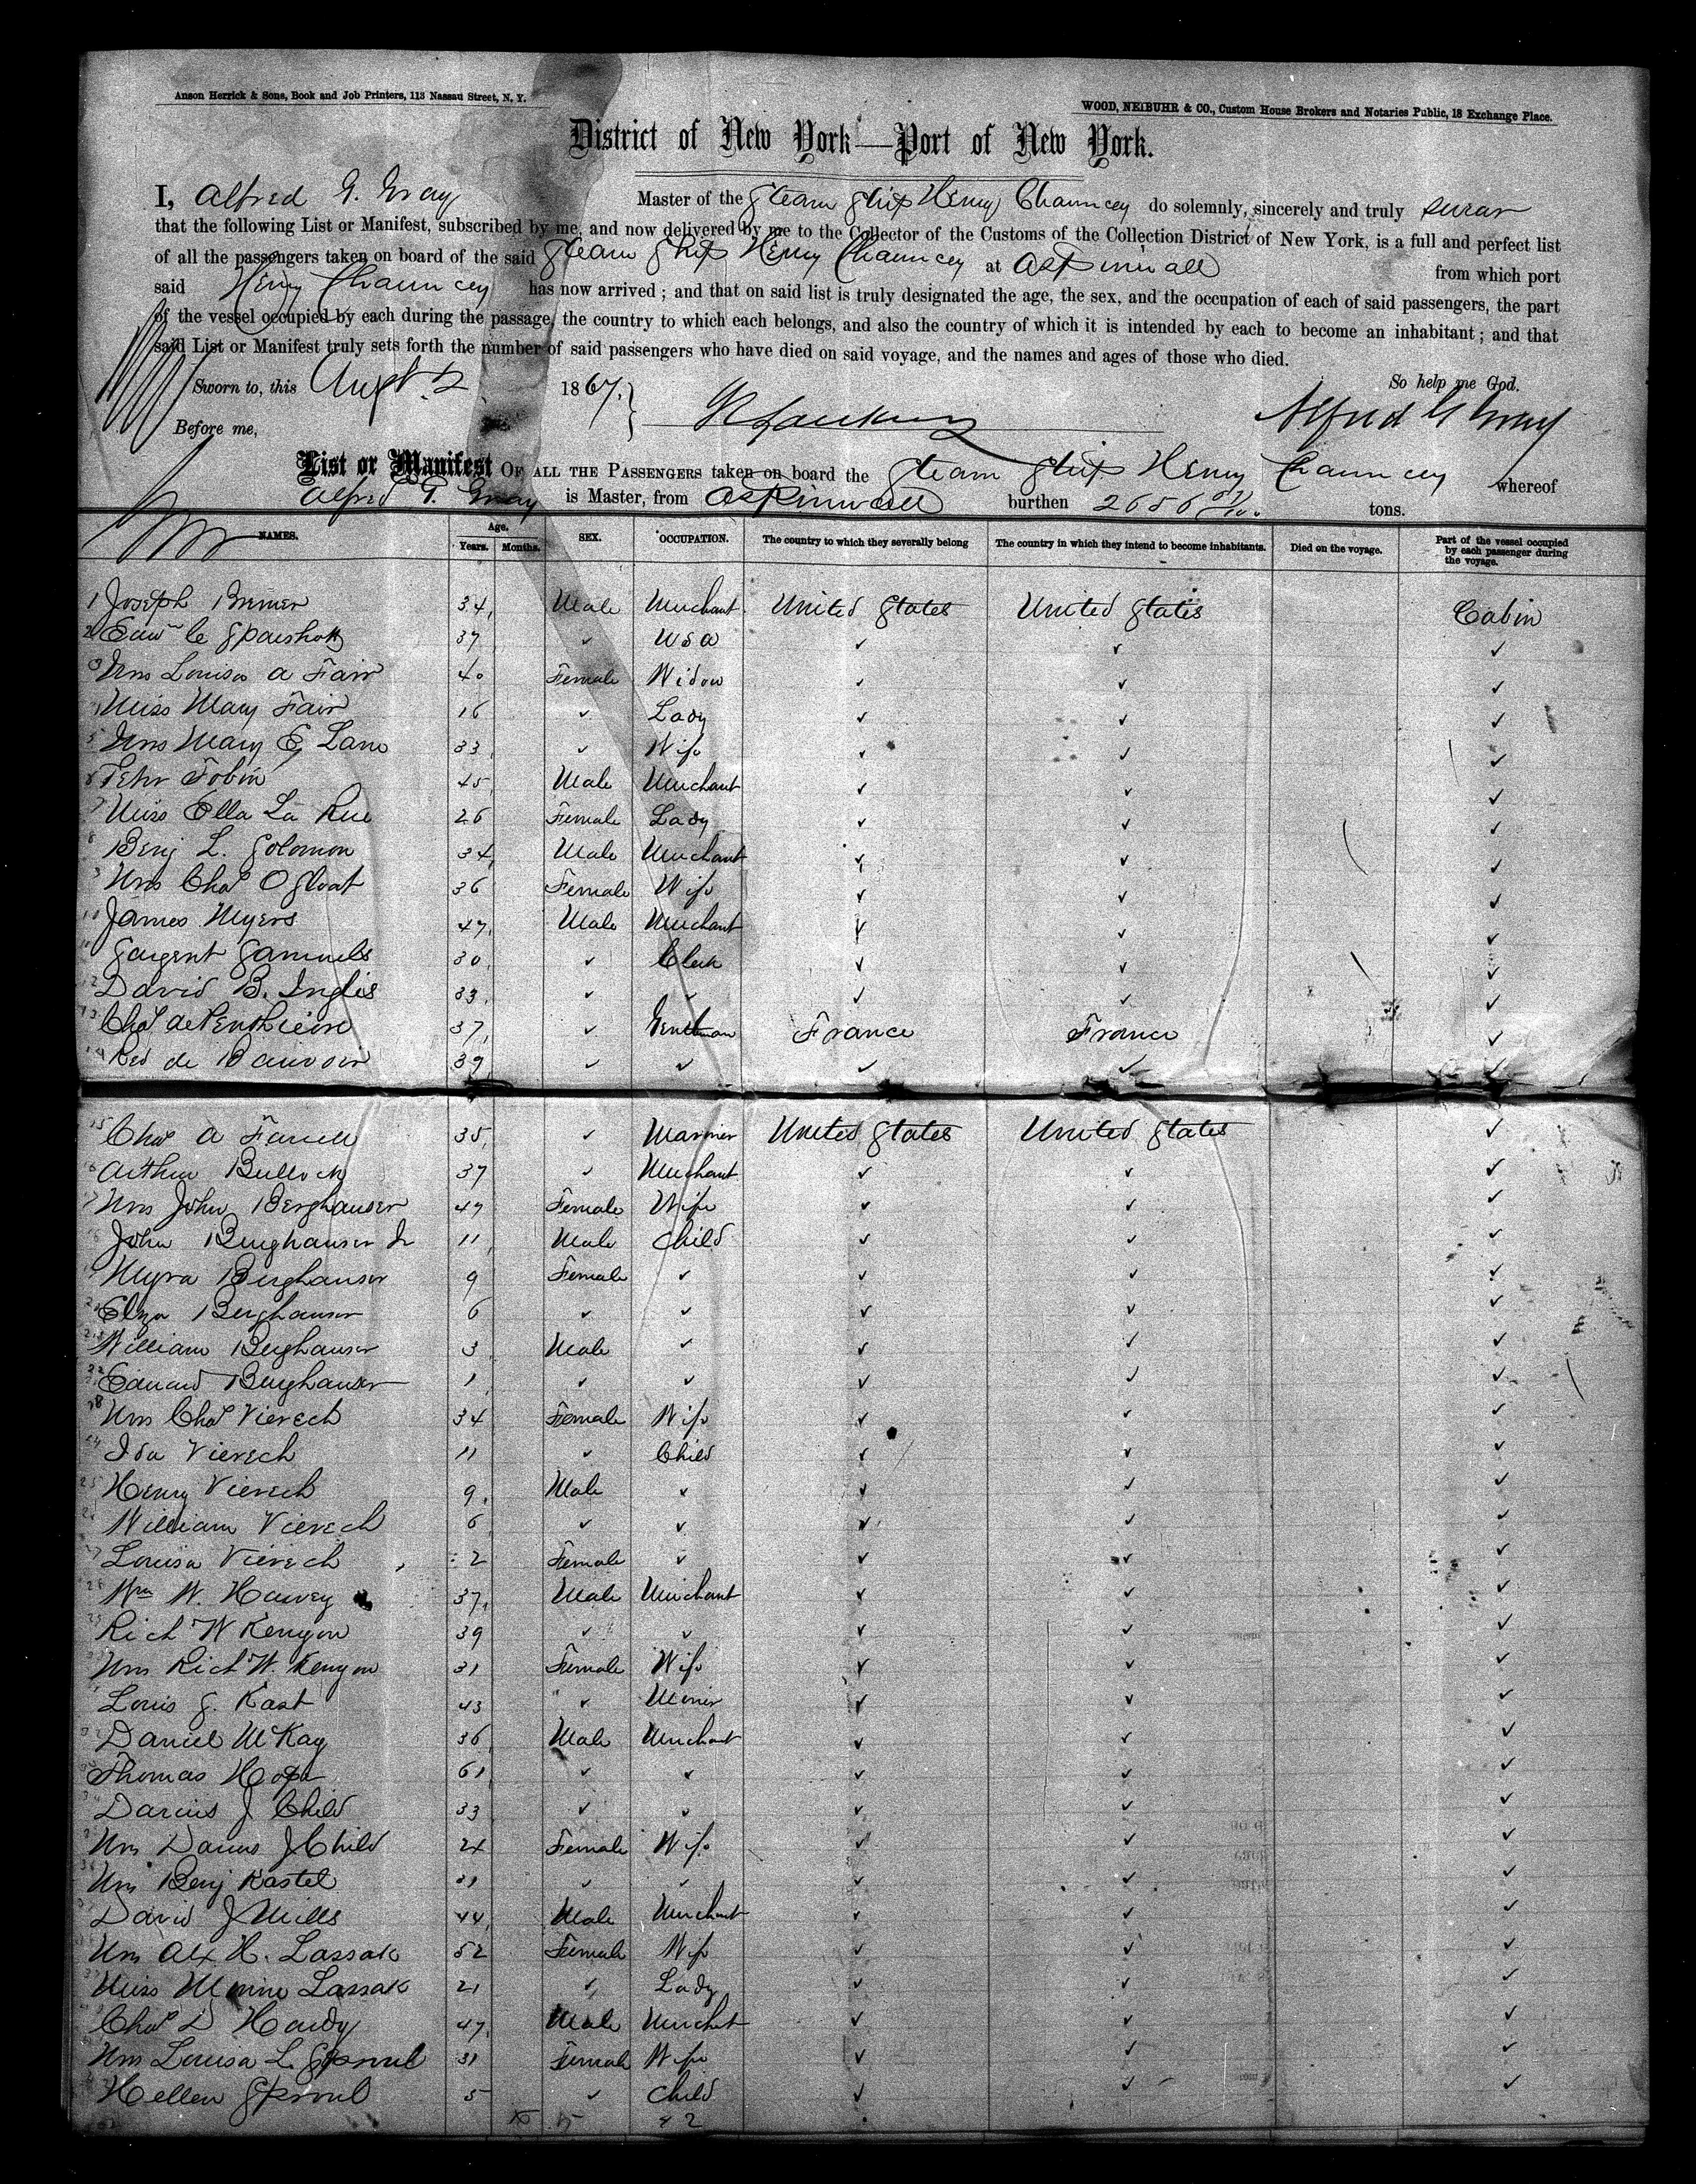 Anson Herrick & Sons, Book and Job Printers, 113 Nassau Street, N. Y.
WOOD, NEIBUHR & CO., Custom House Brokers and Notaries Public, 18 Exchange Place.
District of New York—Port of New York.
I, Alfred G. Gray Master of the Steam Ship Henry Chauncey do solemnly, sincerely and truly swear
that the following List or Manifest, subscribed by me, and now delivered by me to the Collector of the Customs of the Collection District of New York, is a full and perfect list
of all the passengers taken on board of the said Steam Ship Henry Chauncey at Aspinwall from which port
said Henry Chauncey has now arrived ; and that on said list is truly designated the age, the sex, and the occupation of each of said passengers, the part
of the vessel occupied by each during the passage, the country to which each belongs, and also the country of which it is intended by each to become an inhabitant ; and that
said List or Manifest truly sets forth the number of said passengers who have died on said voyage, and the names and ages of those who died.
Sworn to, this Augt. 2 1867. So help me God.
Before me, Alfred G Gray
List or Manifest OF ALL THE PASSENGERS taken on board the Steam Ship Henry Chauncey whereof
Alfred G. Gray is Master, from Aspinwall burthen 2656 tons.
NAMES. Age. Years. Months. SEX. OCCUPATION. The country to which they severally belong The country in which they intend to become inhabitants. Died on the voyage. Part of the vessel occupied by each passenger during the voyage.
1 Joseph Bremer 34 Male Merchant United States United States Cabin
2 37 ✓ USA ✓ ✓ ✓
3 Mrs Louisa A Fair 40 Female Widow ✓ ✓ ✓
4 Miss Mary Fair 16 ✓ Lady ✓ ✓ ✓
5 Mrs Mary E, Lane 33 ✓ Wife ✓ ✓ ✓
6 Peter Tobin 45 Male Merchant ✓ ✓ ✓
7 Miss Ella La Rue 26 Female Lady ✓ ✓ ✓
8 Benj L. Solomon 34 Male Merchant ✓ ✓ ✓
9 Mrs Chas O Sloat 36 Female Wife ✓ ✓ ✓
10 James Myers 47 Male Merchant ✓ ✓ ✓
11 Sargent Samuels 30 ✓ Clerk ✓ ✓ ✓
12 David B. Inglis 33 ✓ ✓ ✓ ✓ ✓
13 Chas de Penthievre 37 ✓ Gentleman France France ✓
14 de Beauvoir 39 ✓ ✓ ✓ ✓ ✓
15 Chas A Farrell 35 ✓ Mariner United States United States ✓
16 Arthur Bullock 37 ✓ Merchant ✓ ✓ ✓
17 Mrs John Berghauser 47 Female Wife ✓ ✓ ✓
18 John Berghauser Jr 11 Male Child ✓ ✓ ✓
19 Myra Berghauser 9 Female ✓ ✓ ✓ ✓
20 Eliza Berghauser 6 ✓ ✓ ✓ ✓ ✓
21 William Berghauser 3 Male ✓ ✓ ✓ ✓
22 Edward Berghauser 1 ✓ ✓ ✓ ✓ ✓
23 Mrs Chas Vierech 34 Female Wife ✓ ✓ ✓
24 Ida Vierech 11 ✓ Child ✓ ✓ ✓
25 Henry Vierech 9 Male ✓ ✓ ✓ ✓
26 William Vierech 6 ✓ ✓ ✓ ✓ ✓
27 Louisa Vierech 2 Female ✓ ✓ ✓ ✓
28 Wm W. Harvey 37 Male Merchant ✓ ✓ ✓
29 Rich W Kenyon 39 ✓ ✓ ✓ ✓ ✓
Mrs Rich W. Kenyon 31 Female Wife ✓ ✓ ✓
Louis S. Kast 43 ✓ Miner ✓ ✓ ✓
32 Daniel McKay 36 Male Merchant ✓ ✓ ✓
33 Thomas Hope 61 ✓ ✓ ✓ ✓ ✓
34 Darius J Child 33 ✓ ✓ ✓ ✓ ✓
Mrs Darius J Child 24 Female Wife ✓ ✓ ✓
36 Mrs Benj Kastel 31 ✓ ✓ ✓ ✓ ✓
David J Mills 44 Male Merchant ✓ ✓ ✓
Mrs Alex H. Lassak 52 Female Wife ✓ ✓ ✓
Miss Minnie Lassak 21 ✓ Lady ✓ ✓ ✓
Chas D Hardy 47 Male Merchant ✓ ✓ ✓
Mrs Louisa L. Sproul 31 Female Wife ✓ ✓ ✓
Hellen Sproul 5 ✓ Child ✓ ✓ ✓
42